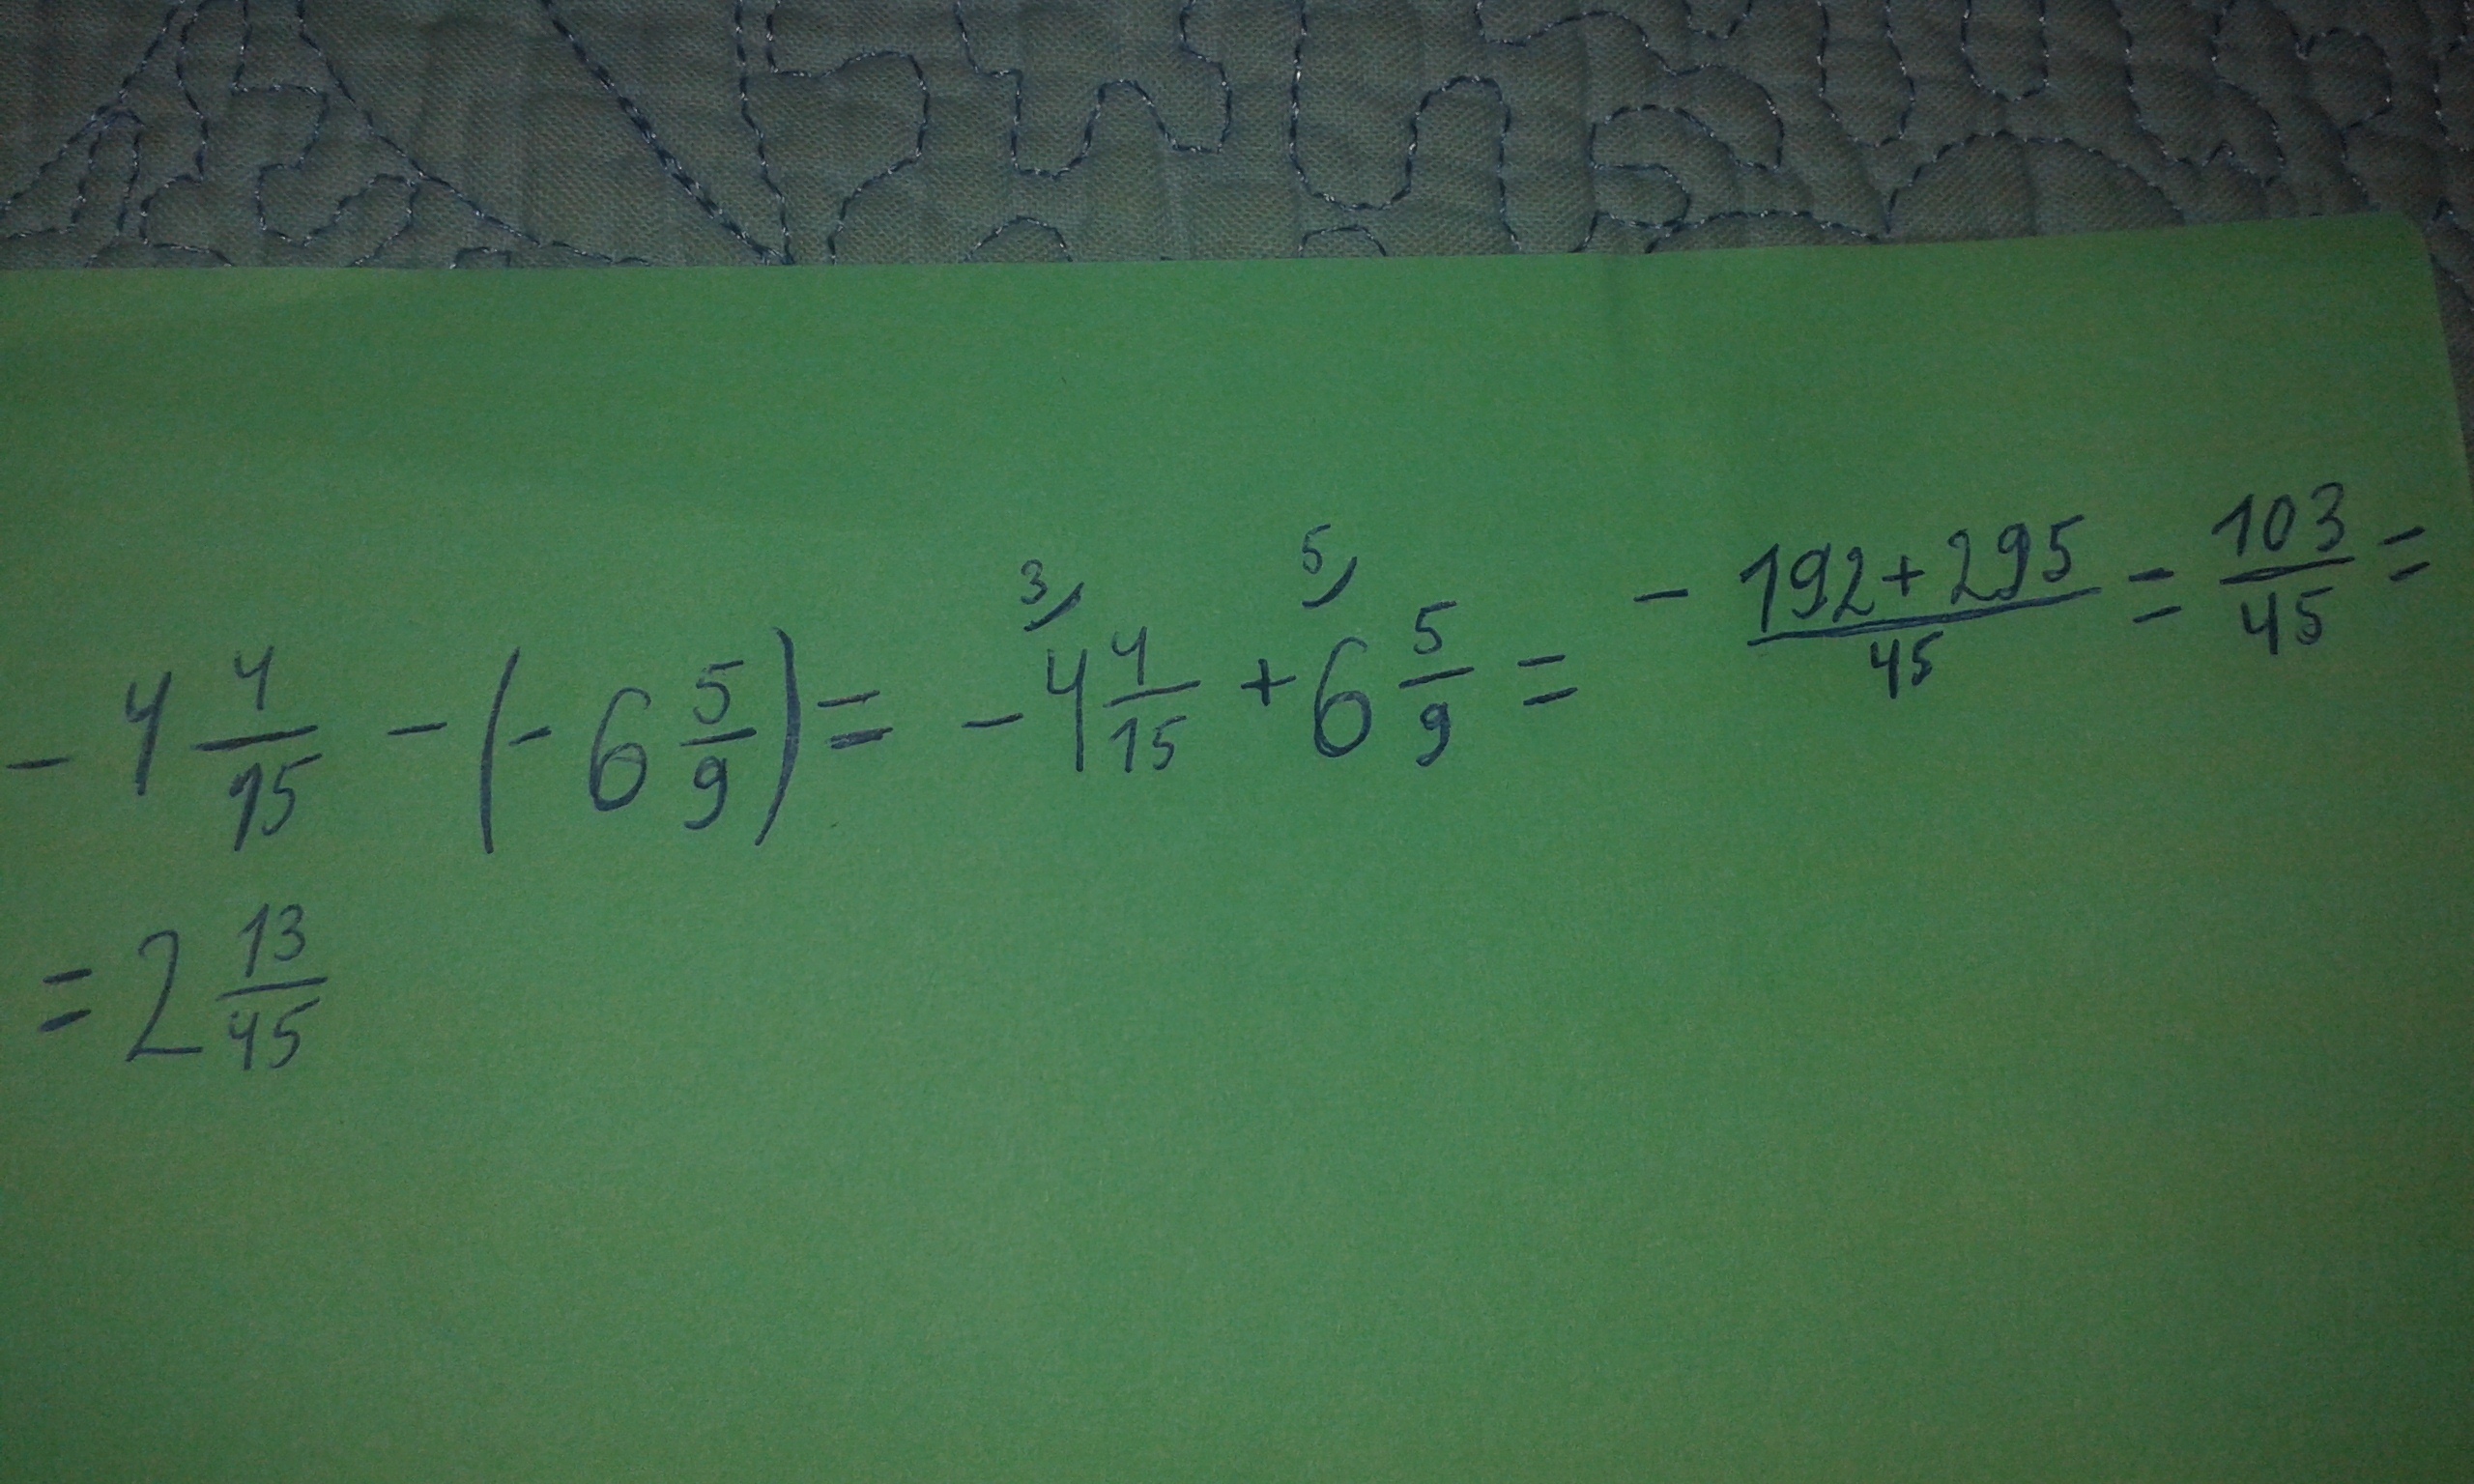 -4 4/15 - (-6 5/9) = -4 4/15 ³⁄ + 6 5/9 ⁵⁄ = - 192+295/45 = 103/45 =
= 2 13/45